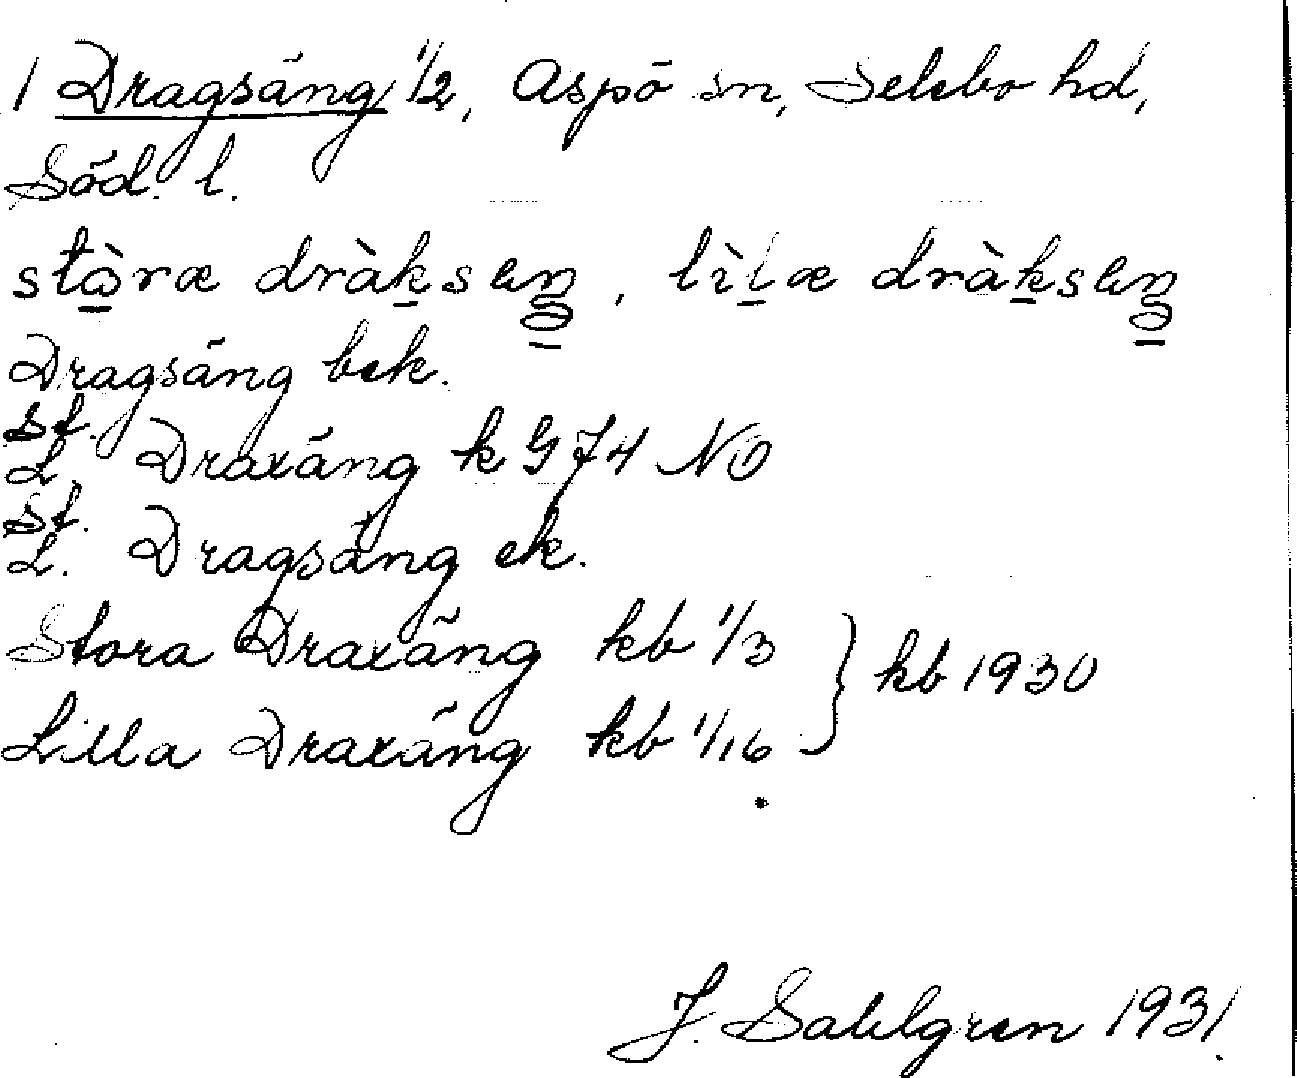 1 Dragsäng 1/2, Aspö sn, Selebo hd,
Söd. l.
stòræ dràkseŋ, lìlæ dràkseŋ
Dragsäng bek.
St. L. Draxäng k G 74 NO
St. L. Dragsäng ek.
Stora Draxäng kb 1/3
Lilla Draxäng kb 1/16 } kb 1930
J. Sahlgren 1931.